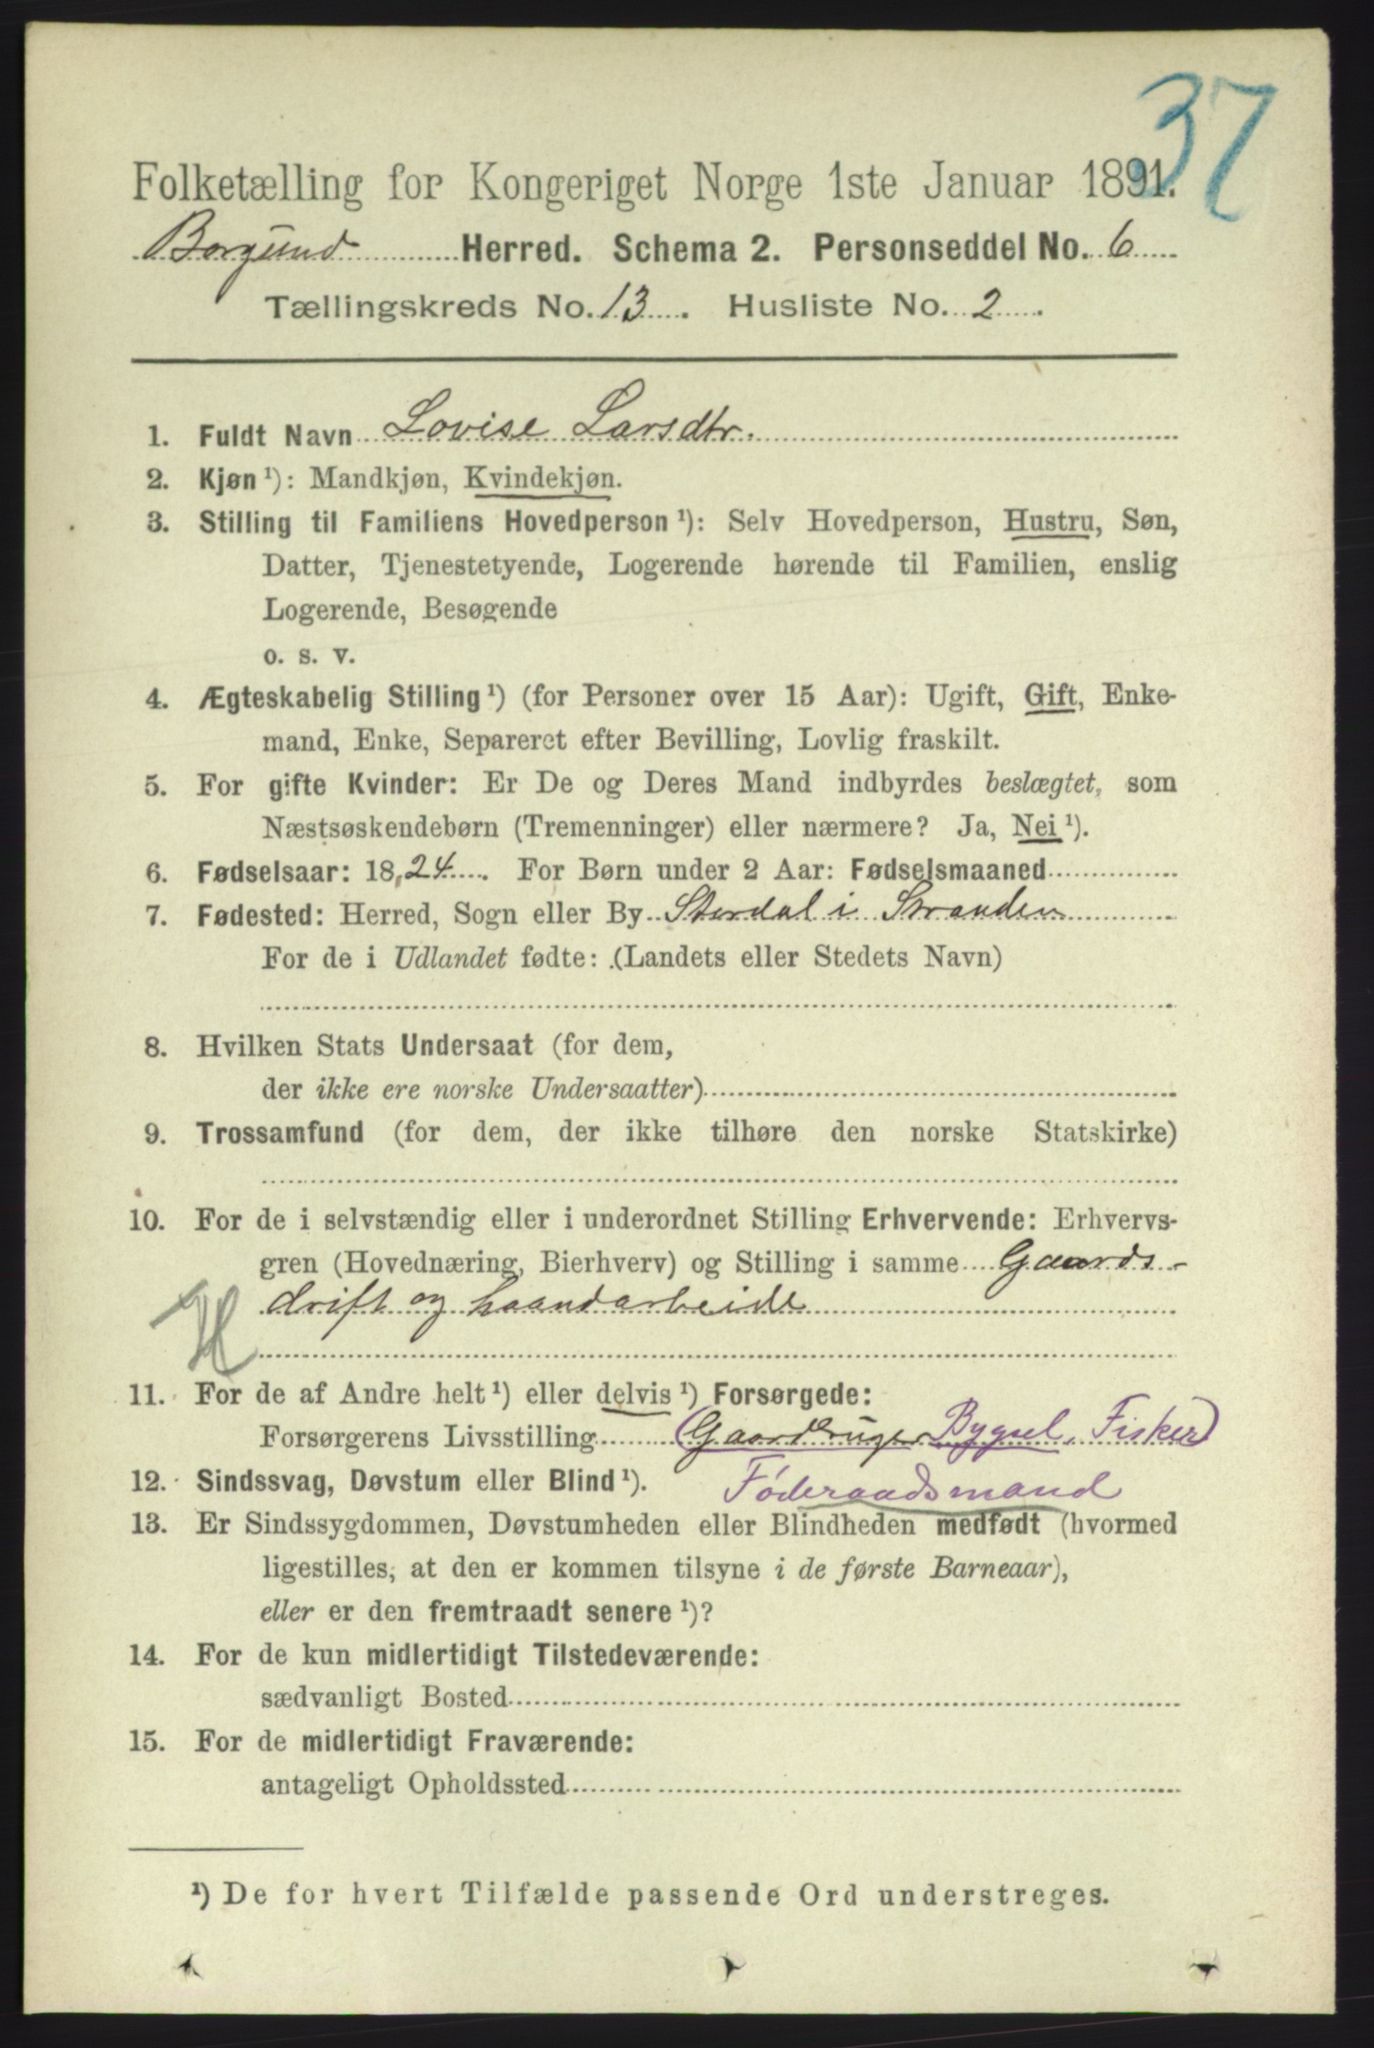 37
Folketælling for Kongeriget Norge 1ste Januar 1891.
Borgund Herred. Schema 2. Personseddel No. 6
Tællingskreds No. 13. Husliste No. 2.
1. Fuldt Navn Lovise Larsdtr.
2. Kjøn ¹): Mandkjøn, Kvindekjøn.
3. Stilling til Familiens Hovedperson ¹): Selv Hovedperson, Hustru, Søn,
Datter, Tjenestetyende, Logerende hørende til Familien, enslig
Logerende, Besøgende
o. s. v.
4. Ægteskabelig Stilling ¹) (for Personer over 15 Aar): Ugift, Gift, Enke-
mand, Enke, Separeret efter Bevilling, Lovlig fraskilt.
5. For gifte Kvinder: Er De og Deres Mand indbyrdes beslægtet, som
Næstsøskendebørn (Tremenninger) eller nærmere? Ja, Nei ¹).
6. Fødselsaar: 1824. For Børn under 2 Aar: Fødselsmaaned
7. Fødested: Herred, Sogn eller By Stordal i Stranden
For de i Udlandet fødte: (Landets eller Stedets Navn)
8. Hvilken Stats Undersaat (for dem,
der ikke ere norske Undersaatter)
9. Trossamfund (for dem, der ikke tilhøre den norske Statskirke)
10. For de i selvstændig eller i underordnet Stilling Erhvervende: Erhvervs-
gren (Hovednæring, Bierhverv) og Stilling i samme Gaards-
drift og haandarbeide
H
11. For de af Andre helt ¹) eller delvis ¹) Forsørgede:
Forsørgerens Livsstilling (Gaardbruger Bygsel, Fisker)
12. Sindssvag, Døvstum eller Blind ¹). Føderaadsmand
13. Er Sindssygdommen, Døvstumheden eller Blindheden medfødt (hvormed
ligestilles, at den er kommen tilsyne i de første Barneaar),
eller er den fremtraadt senere ¹)?
14. For de kun midlertidigt Tilstedeværende:
sædvanligt Bosted
15. For de midlertidigt Fraværende:
antageligt Opholdssted
¹) De for hvert Tilfælde passende Ord understreges.